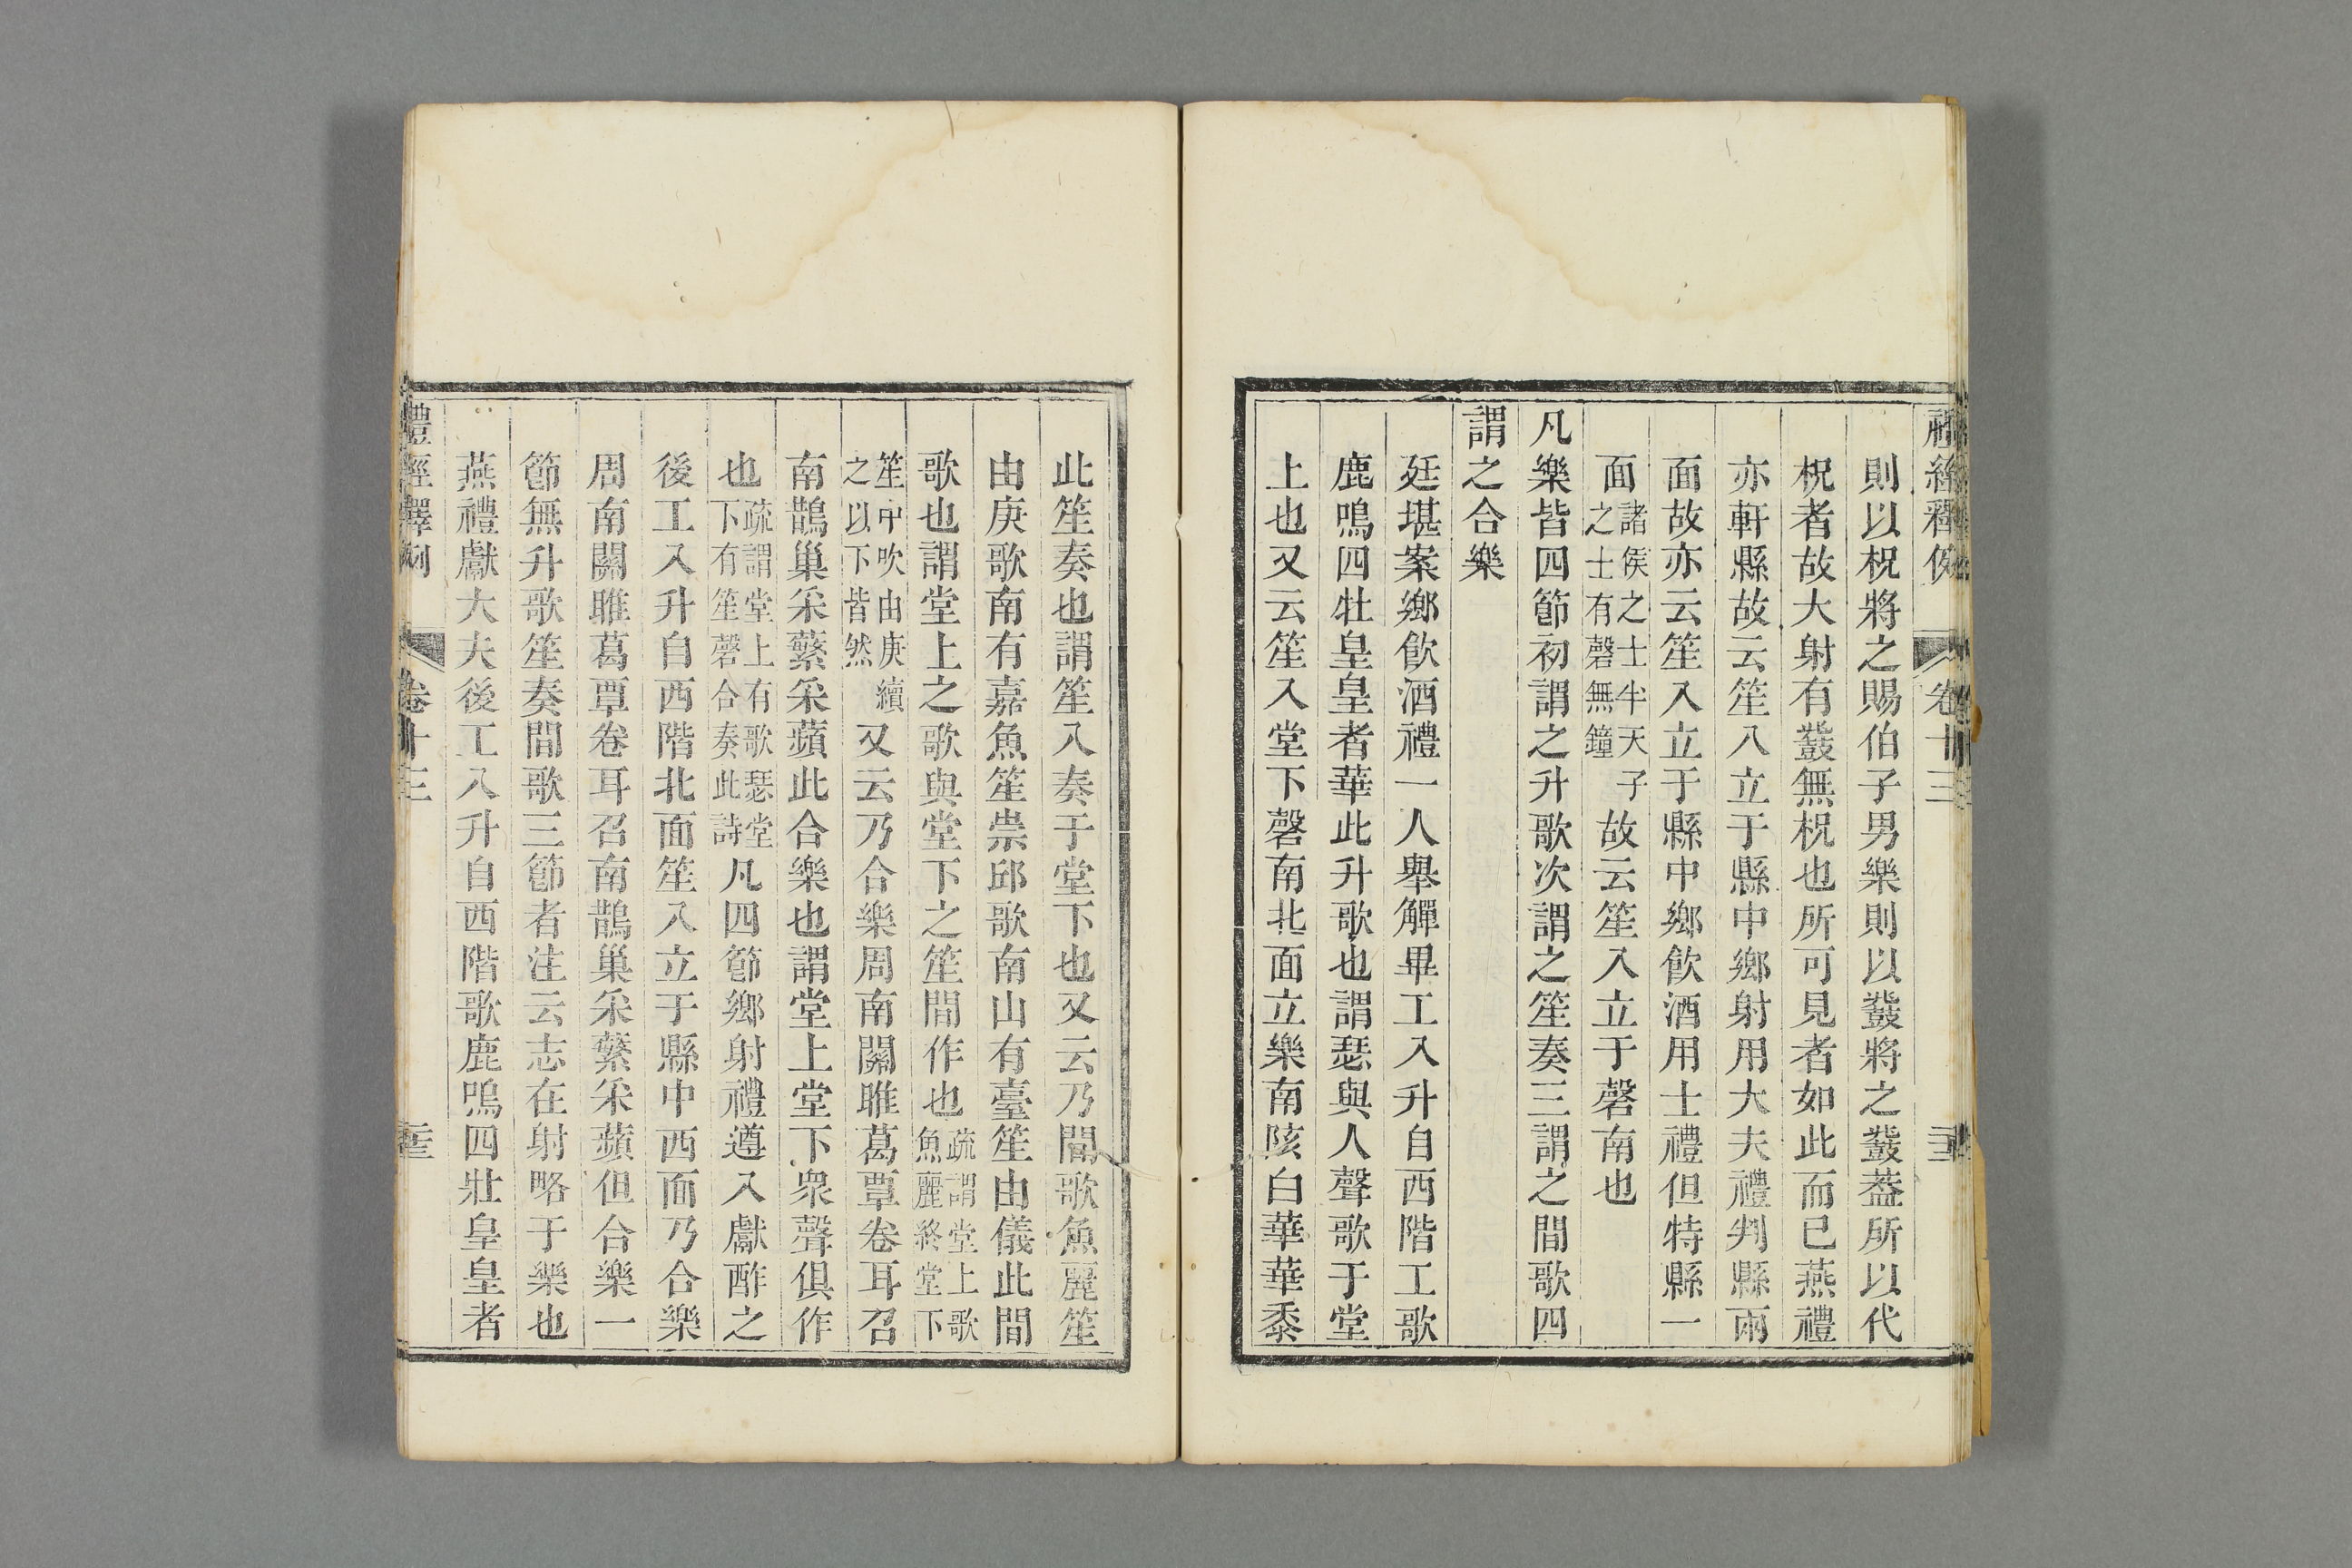 禮經釋例 卷十三
則以柷將之賜伯子男樂則以鼗將之鼗葢所以代
柷者故大射有鼗無柷也所可見者如此而已燕禮
亦軒縣故云笙入立于縣中鄉射用大夫禮判縣兩
面故亦云笙入立于縣中鄉飲酒用士禮但特縣一
面諸侯之士半天子之士有磬無鐘故云笙入立于磬南也
凡樂皆四節初謂之升歌次謂之笙奏三謂之間歌四
謂之合樂
廷堪案鄉飲酒禮一人舉觶畢工入升自西階工歌
鹿鳴四牡皇皇者華此升歌也謂瑟與人聲歌于堂
上也又云笙入堂下磬南北面立樂南陔白華華黍
此笙奏也謂笙入奏于堂下也又云乃間歌魚麗笙
由庚歌南有嘉魚笙崇邱歌南山有臺笙由儀此間
歌也謂堂上之歌與堂下之笙間作也疏謂堂上歌魚麗終堂下
笙中吹由庚續之以下皆然又云乃合樂周南關雎葛覃卷耳召
南鵲巢采蘩采蘋此合樂也謂堂上堂下眾聲俱作
也疏謂堂上有歌瑟堂下有笙磬合奏此詩凡四節鄉射禮遵入獻酢之
後工入升自西階北面笙入立于縣中西面乃合樂
周南關雎葛覃卷耳召南鵲巢采蘩采蘋但合樂一
節無升歌笙奏間歌三節者注云志在射略于樂也
燕禮獻大夫後工入升自西階歌鹿鳴四牡皇皇者
禮經釋例 卷十三